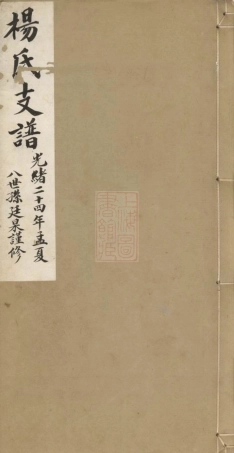 楊氏支譜
光緒二十四年孟夏
八世孫廷杲謹修
上海圖書館藏